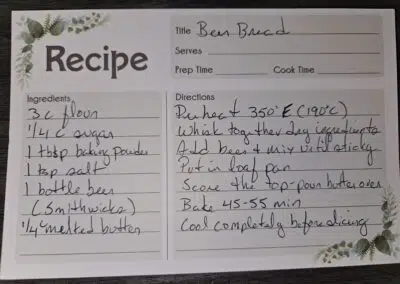 Recipe
Title Beer Bread
Serves
Prep Time Cook Time
Ingredients
3 c flour
1/4 c sugar
1 tbsp baking powder
1 tsp salt
1 bottle beer
(Smithwicks)
1/4 c melted butter
Directions
Preheat 350°F (190°C)
Whisk together dry ingredients
Add beer & mix until sticky
Put in loaf pan
Score the top - pour butter over
Bake 45-55 min
Cool completely before slicing